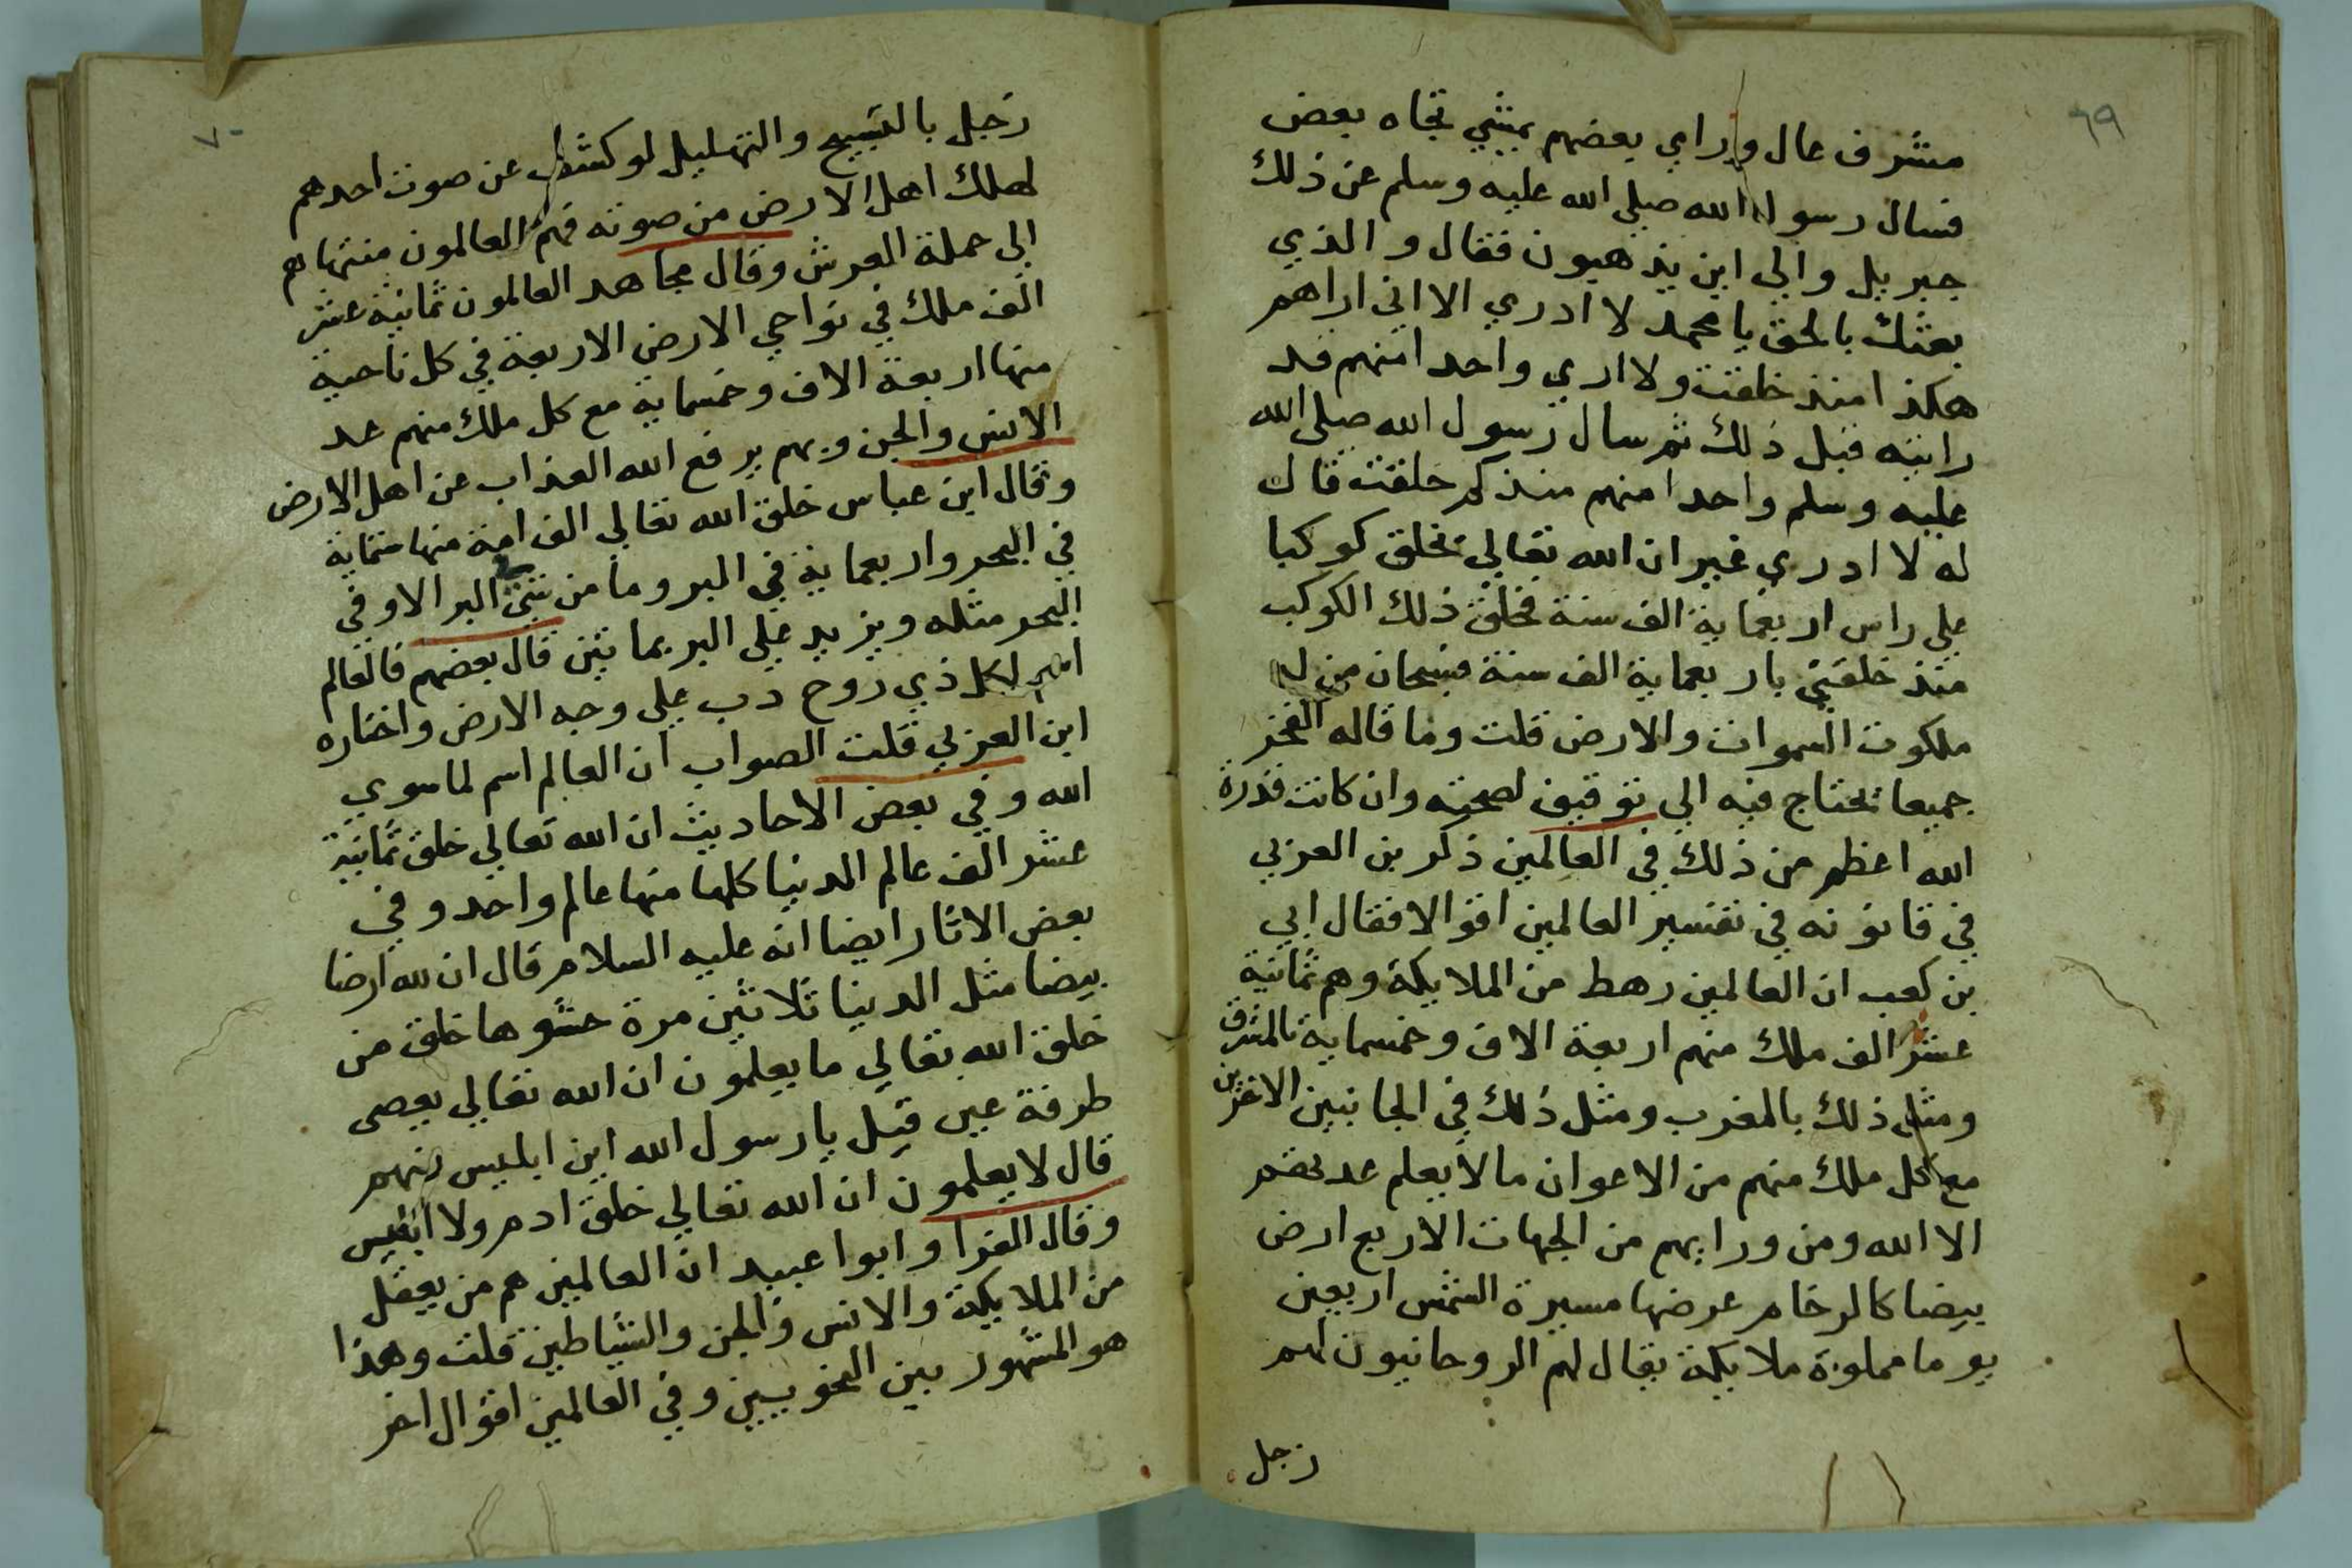 ٦٩
مشرف عال وراي بعضهم يمشي تجاه بعض
فسال رسول الله صلي الله عليه وسلم عن ذلك
جبريل والي اين يذهبون فقال والذي
بعثك بالحق يا محمد لا ادري الا اني اراهم
هكذا منذ خلقت ولا اري واحدا منهم قد
رايته قبل ذلك ثم سال رسول الله صلي الله
عليه وسلم واحدا منهم منذ كم خلقت قال
له لا ادري غير ان الله تعالي يخلق كوكبا
علي راس اربعماية الف سنة فخلق ذلك الكوكب
منذ خلقني باربعماية الف سنة فسبحان من له
ملكوت السموات والارض قلت وما قاله الفخر
جميعا يحتاج فيه الي توقيف لصحته وان كانت قدرة
الله اعظم من ذلك في العالمين ذكر بن العزبي
في قانونه في تفسير العالمين اقوالا فقال ابي
بن كعب ان العالمين رهط من الملايكة وهم ثمانية
عشر الف ملك منهم اربعة الاف وخمسماية بالمشرق
ومثل ذلك بالمغرب ومثل ذلك في الجانبين الاخرين
مع كل ملك منهم من الاعوان ما لا يعلم عدتهم
الا الله ومن ورايهم من الجهات الاربع ارض
بيضا كالرخام عرضها مسيرة الشمس اربعين
يوما مملوة ملايكة يقال لهم الروحانيون لهم
زجل
٧٠
زجل بالتسبيح والتهليل لو كشف عن صوت احدهم
لهلك اهل الارض من صوته فهم العالمون منتهاهم
الي حملة العرش وقال مجاهد العالمون ثمانية عشر
الف ملك في نواحي الارض الاربعة في كل ناحية
منها اربعة الاف وخمسماية مع كل ملك منهم عد
الانس والجن وبهم يرفع الله العذاب عن اهل الارض
وقال ابن عباس خلق الله تعالي الف امة منها ستماية
في البحر واربعماية في البر وما من شي في البر الا وفي
البحر مثله ويزيد علي البر بماتين قال بعضهم فالعالم
اسم لكل ذي روح دب علي وجه الارض واختاره
ابن العزبي قلت الصواب ان العالم اسم لما سوي
الله وفي بعض الاحاديث ان الله تعالي خلق ثمانية
عشر الف عالم الدنيا كلها منها عالم واحد وفي
بعض الاثار ايضا انه عليه السلام قال ان لله ارضا
بيضا مثل الدنيا ثلاثين مرة حشوها خلق من
خلق الله تعالي ما يعلمون ان الله تعالي يعصي
طرفة عين قيل يا رسول الله اين ابليس منهم
قال لا يعلمون ان الله تعالي خلق ادم ولا ابليس
وقال الفرا وابوا عبيد ان العالمين هم من يعقل
من الملايكة والانس والجن والشياطين قلت وهذا
هو المشهور بين النحويين وفي العالمين اقوال اخر